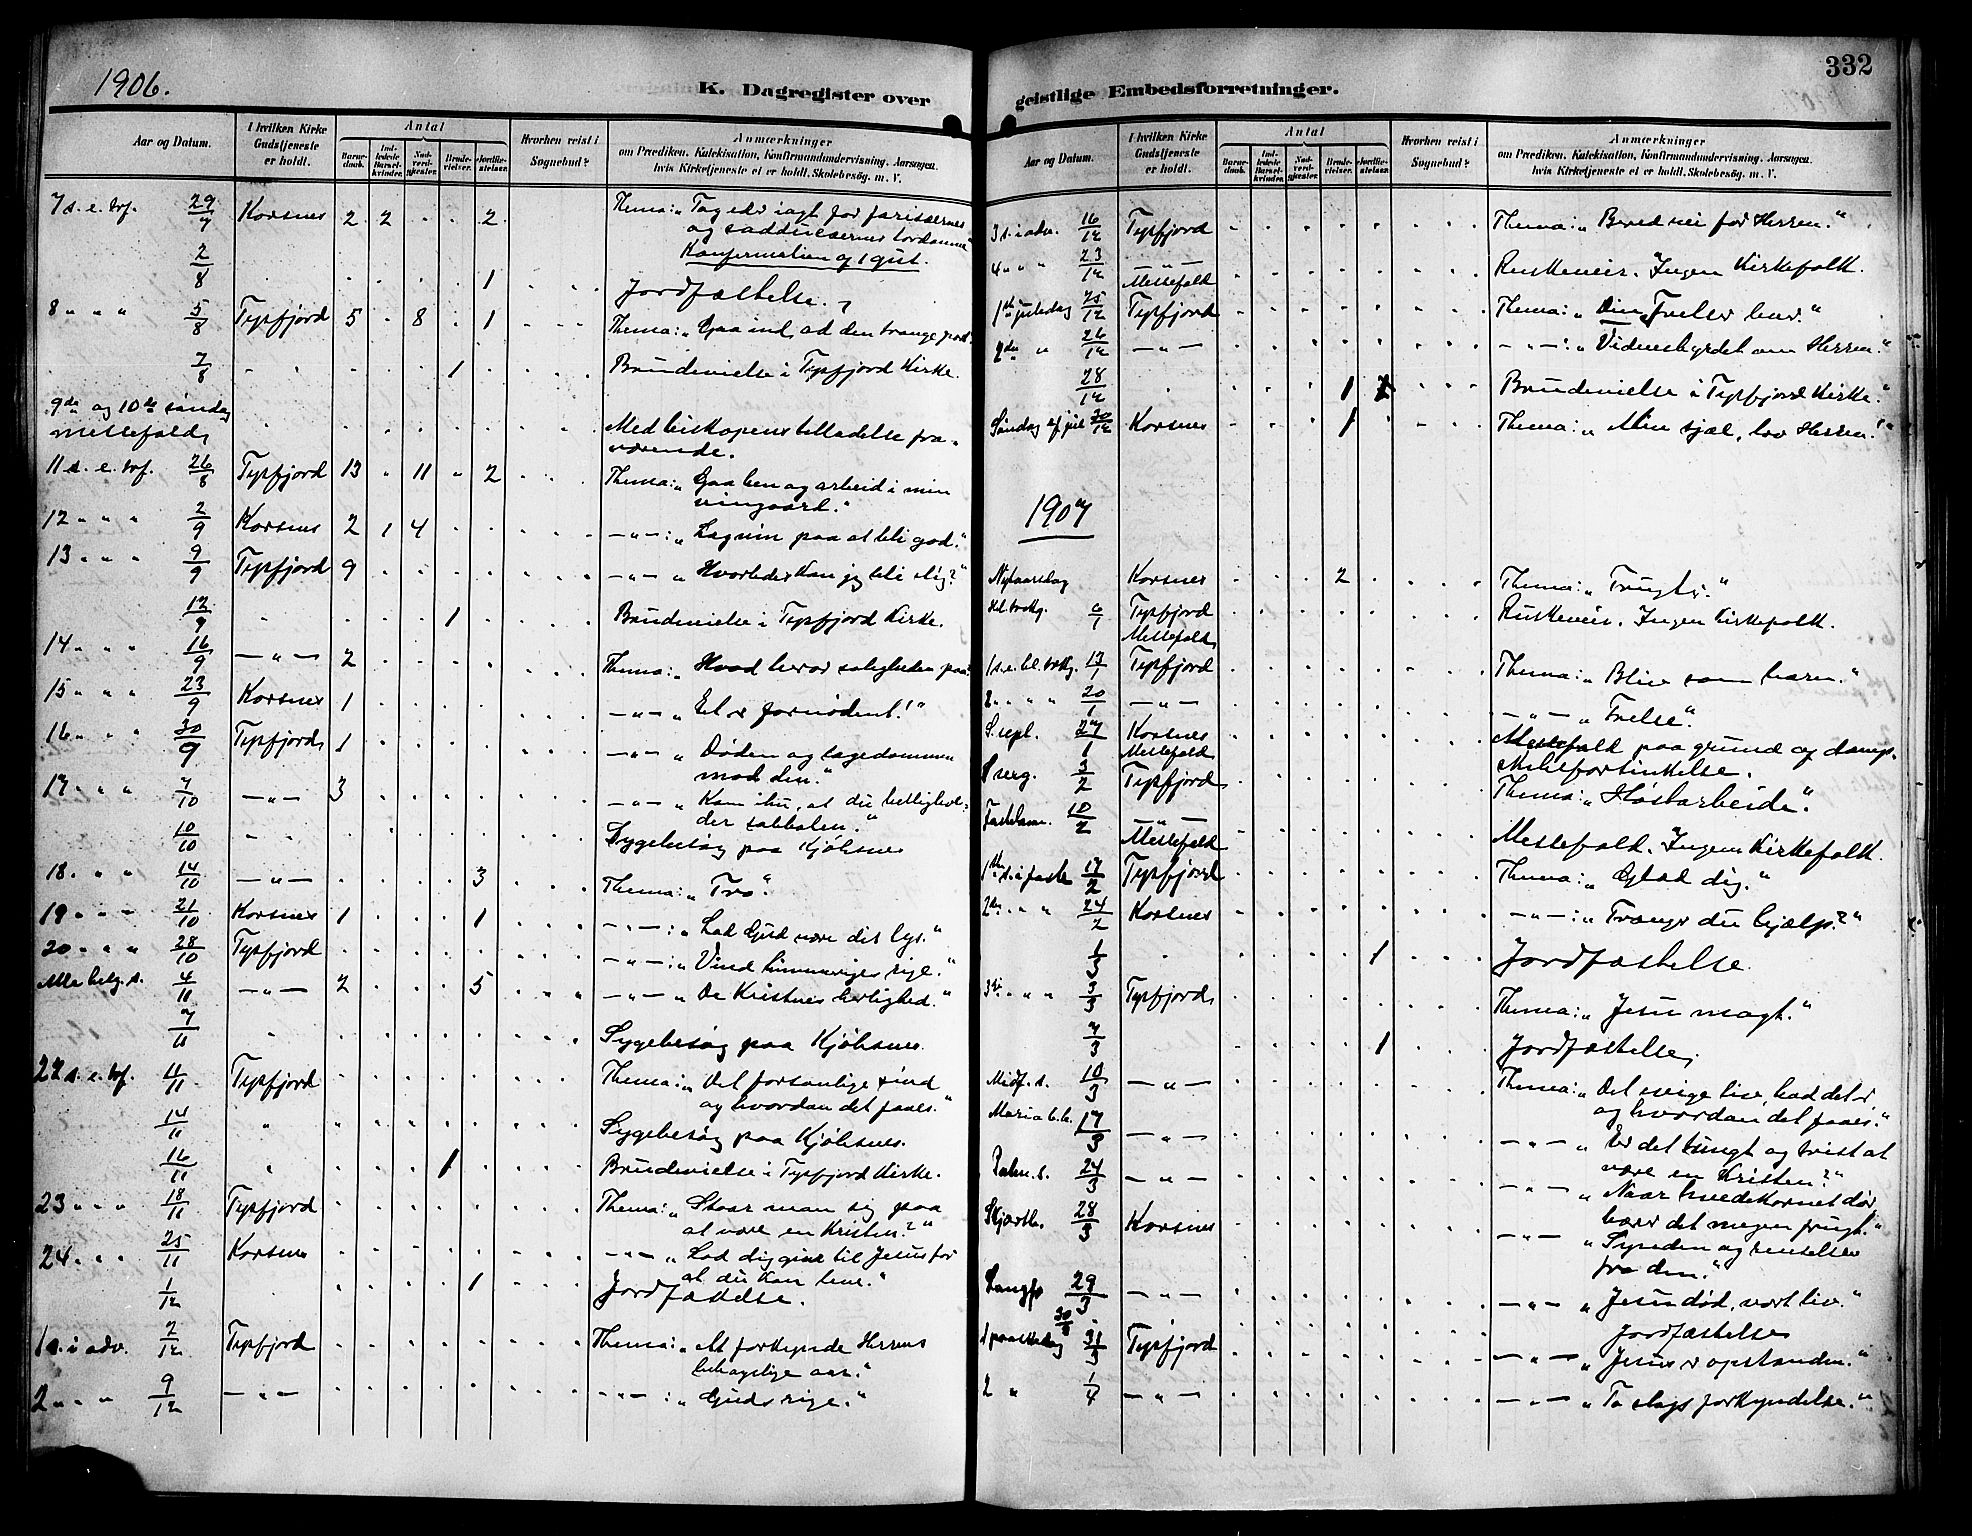 1906.
K. Dagregister over
Aar og Datum. I hvilken Kirke Gudstjeneste er holdt. Antal Barnedaab. Indledede Barselkvinder. Nadverdgjester. Brudevielser. Jordfæstelser. Hvorhen reist i Sognebud? Anmærkninger om Prædiken, Katekisation, Konfirmandundervisning, Aarsagen, hvis Kirketjeneste ei er holdt, Skolebesøg m. V.
7 s. e. tref. 29/7 Korsnes 2 2 . . 2 Thema: „Tag eder iagt for farisæernes
og sadducæernes surdeig"
Konfirmation af 1 gut.
2/8 . . . . 1 Jordfæstelse.
8 " " " 5/8 Tysfjord 5 . 8 . 1 Thema: „Gaa ind ad den trange port.
7/8 . . . 1 . Brudevielse i Tysfjord Kirke.
9de og 10de søndag
messefald Med biskopens tilladelse fra-
værende.
11 s. e. tref. 26/8 Tysfjord 13 . 11 . 2 Thema: „Gaa hen og arbeid i min
vingaard."
12 " " " 2/9 Korsnes 2 1 4 . . —"—: „ paa at bli god."
13 " " " 9/9 Tysfjord 9 . . . . —"— „Hvorledes kan jeg bli slig?"
12/9 . . . 1 . Brudevielse i Tysfjord Kirke.
14 " " " 16/9 —"— 2 . . . . Thema: „Hvad beror saligheden paa?
15 " " " 23/9 Korsnes 1 . . . . —"— „Et er fornødent!"
16 " " " 30/9 Tysfjord 1 . . . . —"— „Døden og lægedommen
mod den."
17 " " " 7/10 —"— 3 . . . . —"— „Kom ihu, at du hellighol-
der sabbaten."
10/10 Sygebesøg paa Kjøbsnes
18 " " " 14/10 —"— . . . . 3 Thema: „Tro".
19 " " " 21/10 Korsnes 1 . . . 1 —"—: „Lad Gud være dit lys."
20 " " " 28/10 Tysfjord . . . . . —"—: „Vind himmeriges rige."
Alle helg. s. 4/11 —"— 2 . . . 5 —"— „De Kristnes herlighed."
7/11 Sygebesøg paa Kjøbsnes.
22 s. e. tref. 11/11 Tysfjord Thema: „Det forsonlige sind
og hvordan det faaes."
14/11 Sygebesøg paa Kjøbsnes.
16/11 . . . 1 . Brudevielse i Tysfjord Kirke.
23 " " " 18/11 Tysfjord Thema: „Staar man sig paa
at være en Kristen?"
24 " " 25/11 Korsnes —"— „Lad dig give til Jesus for
at du kan leve."
1/12 . . . . 1 Jordfæstelse.
1 s. i adv. 2/12 Tysfjord Thema: „At forkynde Herrens
behagelige aar."
2 " " " 9/12 —"— —"—: „Guds rige."
332
geistlige Embedsforretninger.
Aar og Datum. I hvilken Kirke Gudstjeneste er holdt. Antal Barnedaab. Indledede Barselkvinder. Nadverdgjester. Brudevielser. Jordfæstelser. Hvorhen reist i Sognebud? Anmærkninger om Prædiken, Katekisation, Konfirmandundervisning, Aarsagen, hvis Kirketjeneste ei er holdt, Skolebesøg m. V.
3 s. i adv. 16/12 Tysfjord Thema: „Bered vei for Herren."
4 " " " 23/12 —"— Messefald Ruskeveir. Ingen Kirkefolk.
1ste juledag 25/12 Tysfjord Thema: „Din Frelser kom."
2den " 26/12 —"— —"—: „Vidnesbyrdet om Herren."
28/12 . . . 1 Brudevielse i Tysfjord Kirke."
Søndag ef jul 30/12 Korsnes . . . 1 . Thema: „Min sjæl, lov Herren!"
1907
Nytaarsdag Korsnes . . . 2 . Thema: „Frugt."
Hel. trekg. 6/1 Tysfjord Messefald Ruskeveir. Ingen Kirkefolk.
1 s. e. hl. trekg. 13/1 Tysfjord Thema: „Bliv som barn."
2 " " " 20/1 —"— —"— „Frelse".
S. sept. 27/1 Korsnes Messefald Messefald paa grund af damp-
skibsforsinkelse.
S sexg. 3/2 Tysfjord Thema: „Høstarbeide".
Fastelavn. 10/2 —"— Messefald Messefald. Ingen Kirkefolk.
1ste s. i faste 17/2 Tysfjord Thema: „Glæd dig."
2den " " 24/2 Korsnes —"—: „Trænger du hjælp?"
1/3 . . . . 1 Jordfæstelse
3die " " 3/3 Tysfjord Thema: „Jesu magt."
7/3 . . . . 1 Jordfæstelse,
Midf. s. 10/3 —"— Thema: „Det evige liv, hvad det er
og hvordan det faaes."
Maria b. b. 17/3 —"— —"— „Er det tungt og trist at
være en Kristen?"
Palm. s. 24/3 —"— —"— „Naar hvedekornet dør
bærer det megen frugt."
Skjærtb. 28/3 Korsnes —"— „Synden og renselsen
fra den."
Langfr 29/3 —"— —"— „Jesu død, vort liv."
30/3 Jordfæstelse
1 paaskedag 31/3 Tysfjord —"— „Jesus er opstanden."
2 " 1/4 —"— —"— „To slags forkyndelse."